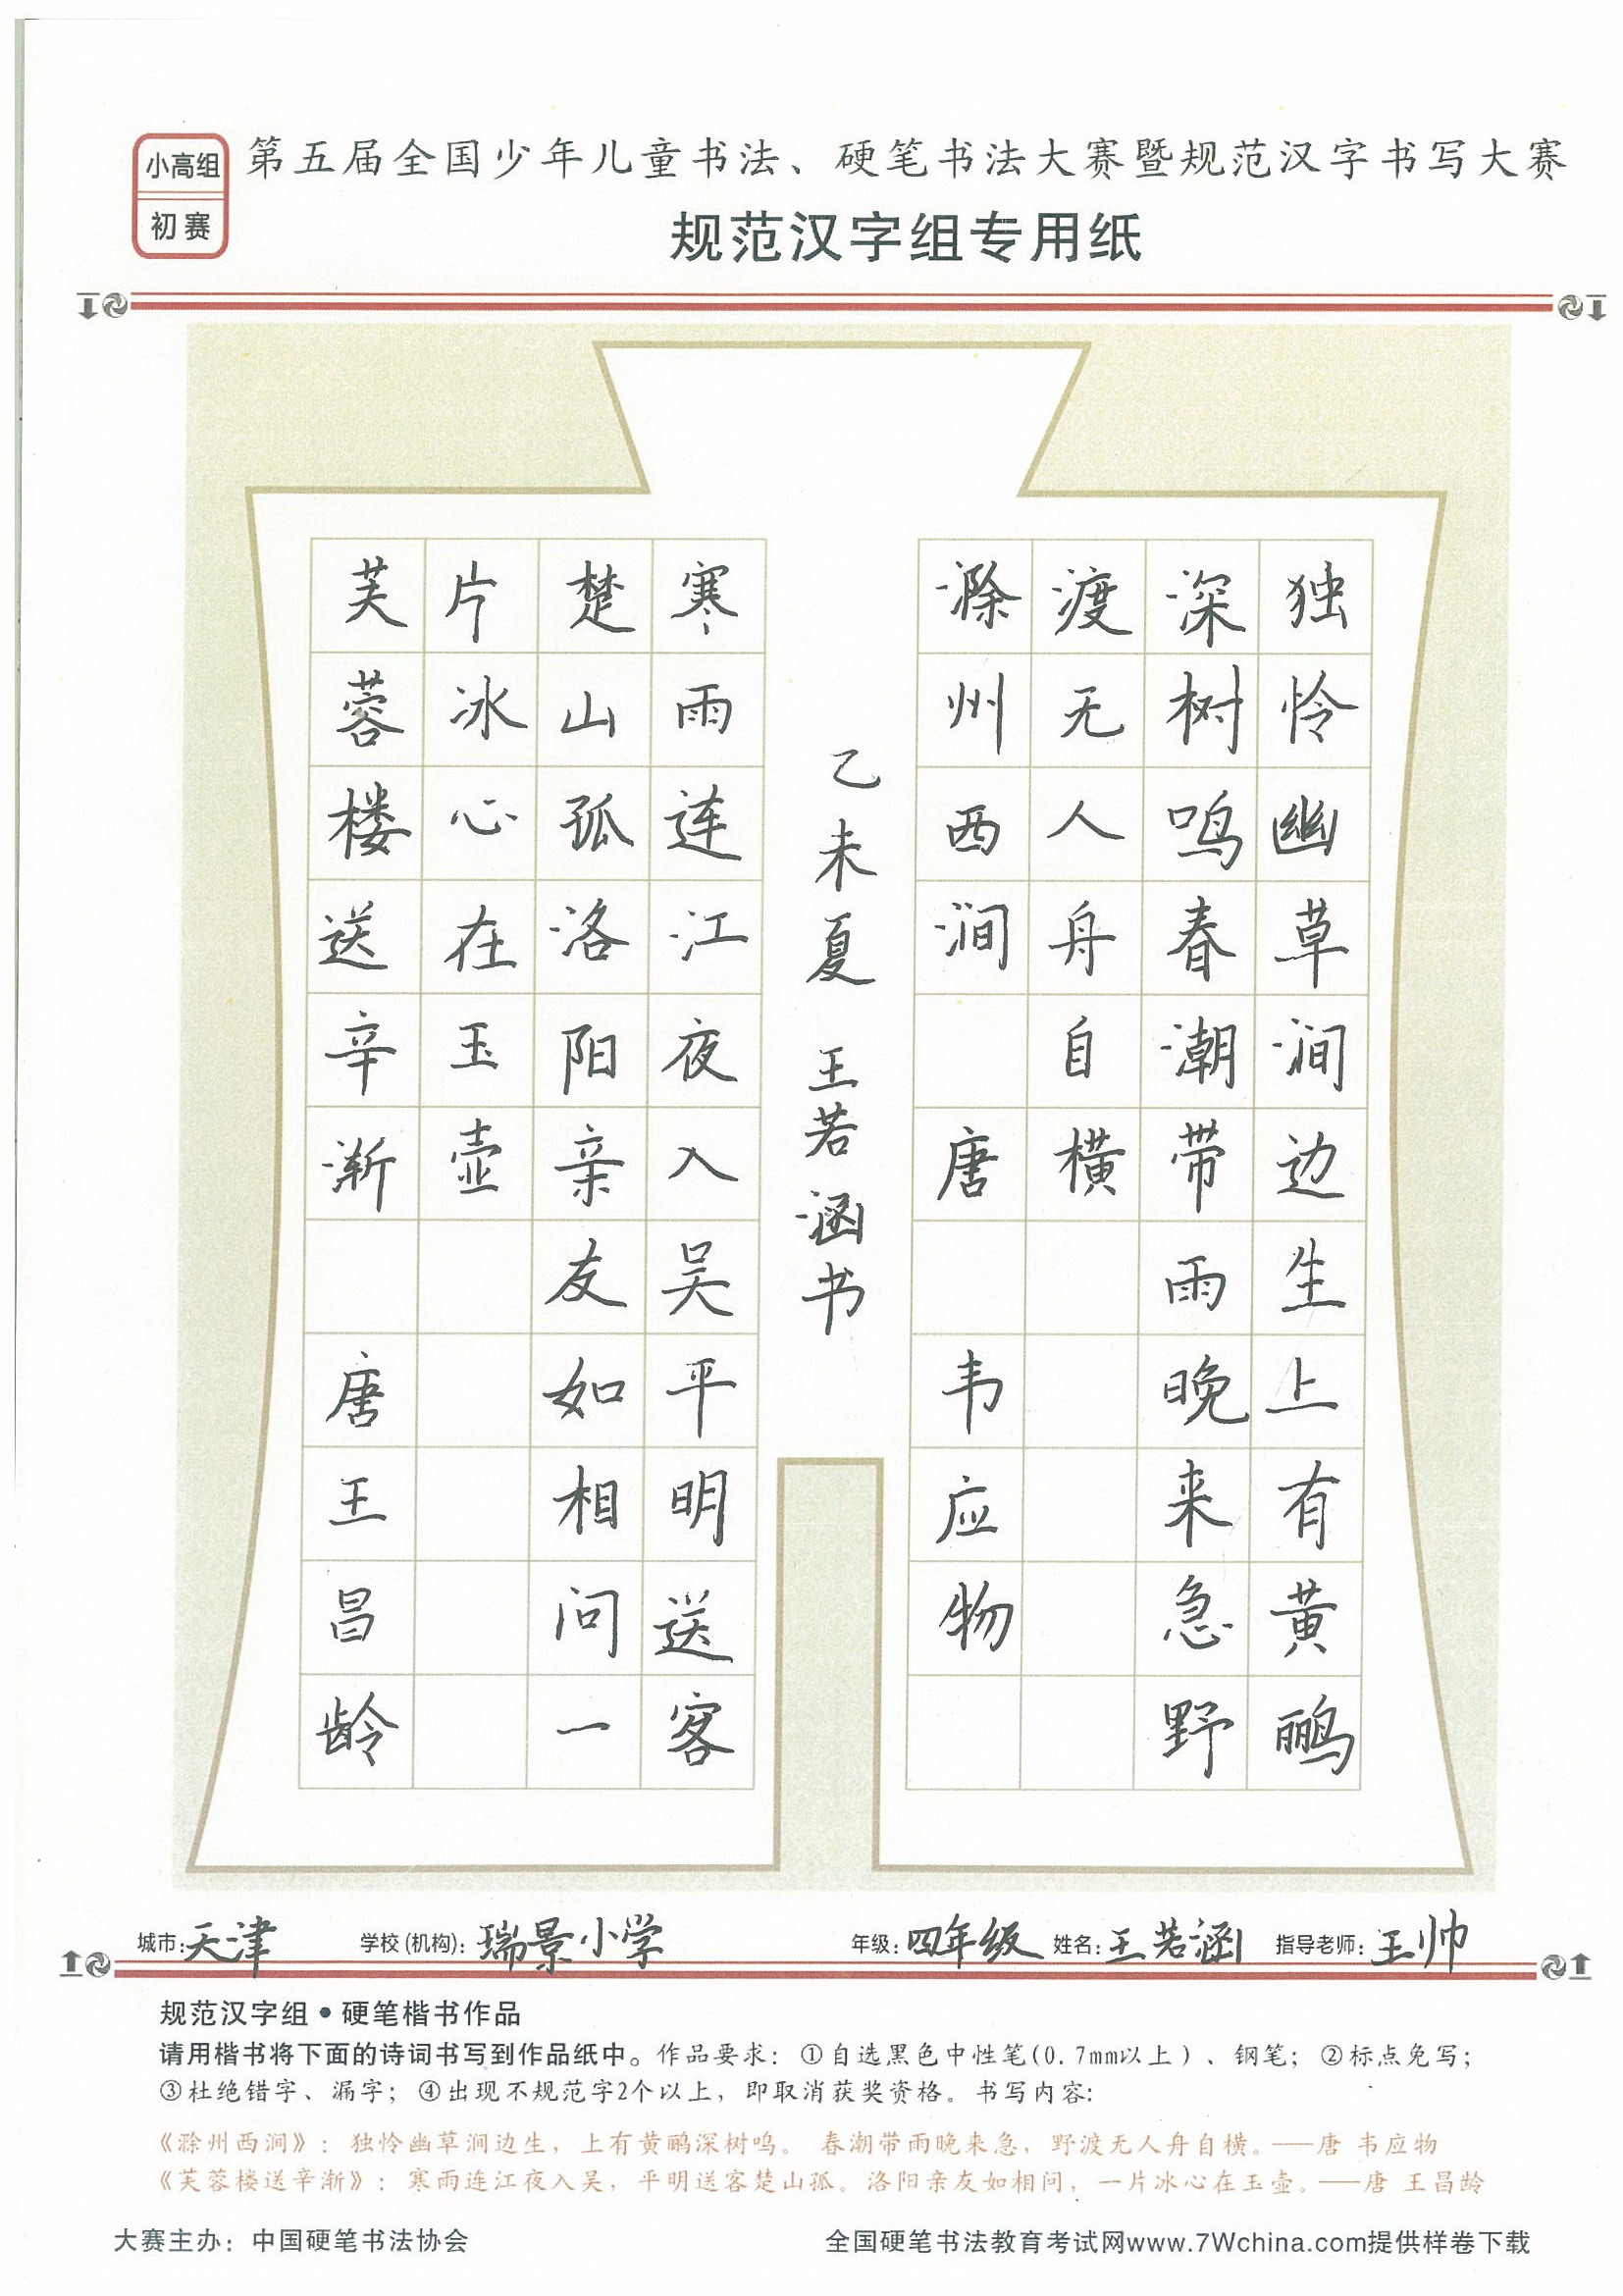 小高组
初赛
第五届全国少年儿童书法、硬笔书法大赛暨规范汉字书写大赛
规范汉字组专用纸
独怜幽草涧边生上有黄鹂
深树鸣春潮带雨晚来急野
渡无人舟自横
滁州西涧 唐 韦应物
乙未夏 王若涵书
寒雨连江夜入吴平明送客
楚山孤洛阳亲友如相问一
片冰心在玉壶
芙蓉楼送辛渐 唐王昌龄
城市:天津 学校(机构):瑞景小学 年级:四年级 姓名:王若涵 指导老师:王帅
规范汉字组•硬笔楷书作品
请用楷书将下面的诗词书写到作品纸中。作品要求：①自选黑色中性笔(0.7mm以上)、钢笔；②标点免写；
③杜绝错字、漏字；④出现不规范字2个以上，即取消获奖资格。书写内容:
《滁州西涧》：独怜幽草涧边生，上有黄鹂深树鸣。 春潮带雨晚来急，野渡无人舟自横。——唐 韦应物
《芙蓉楼送辛渐》：寒雨连江夜入吴，平明送客楚山孤。洛阳亲友如相问，一片冰心在玉壶。——唐 王昌龄
大赛主办：中国硬笔书法协会 全国硬笔书法教育考试网www.7Wchina.com提供样卷下载